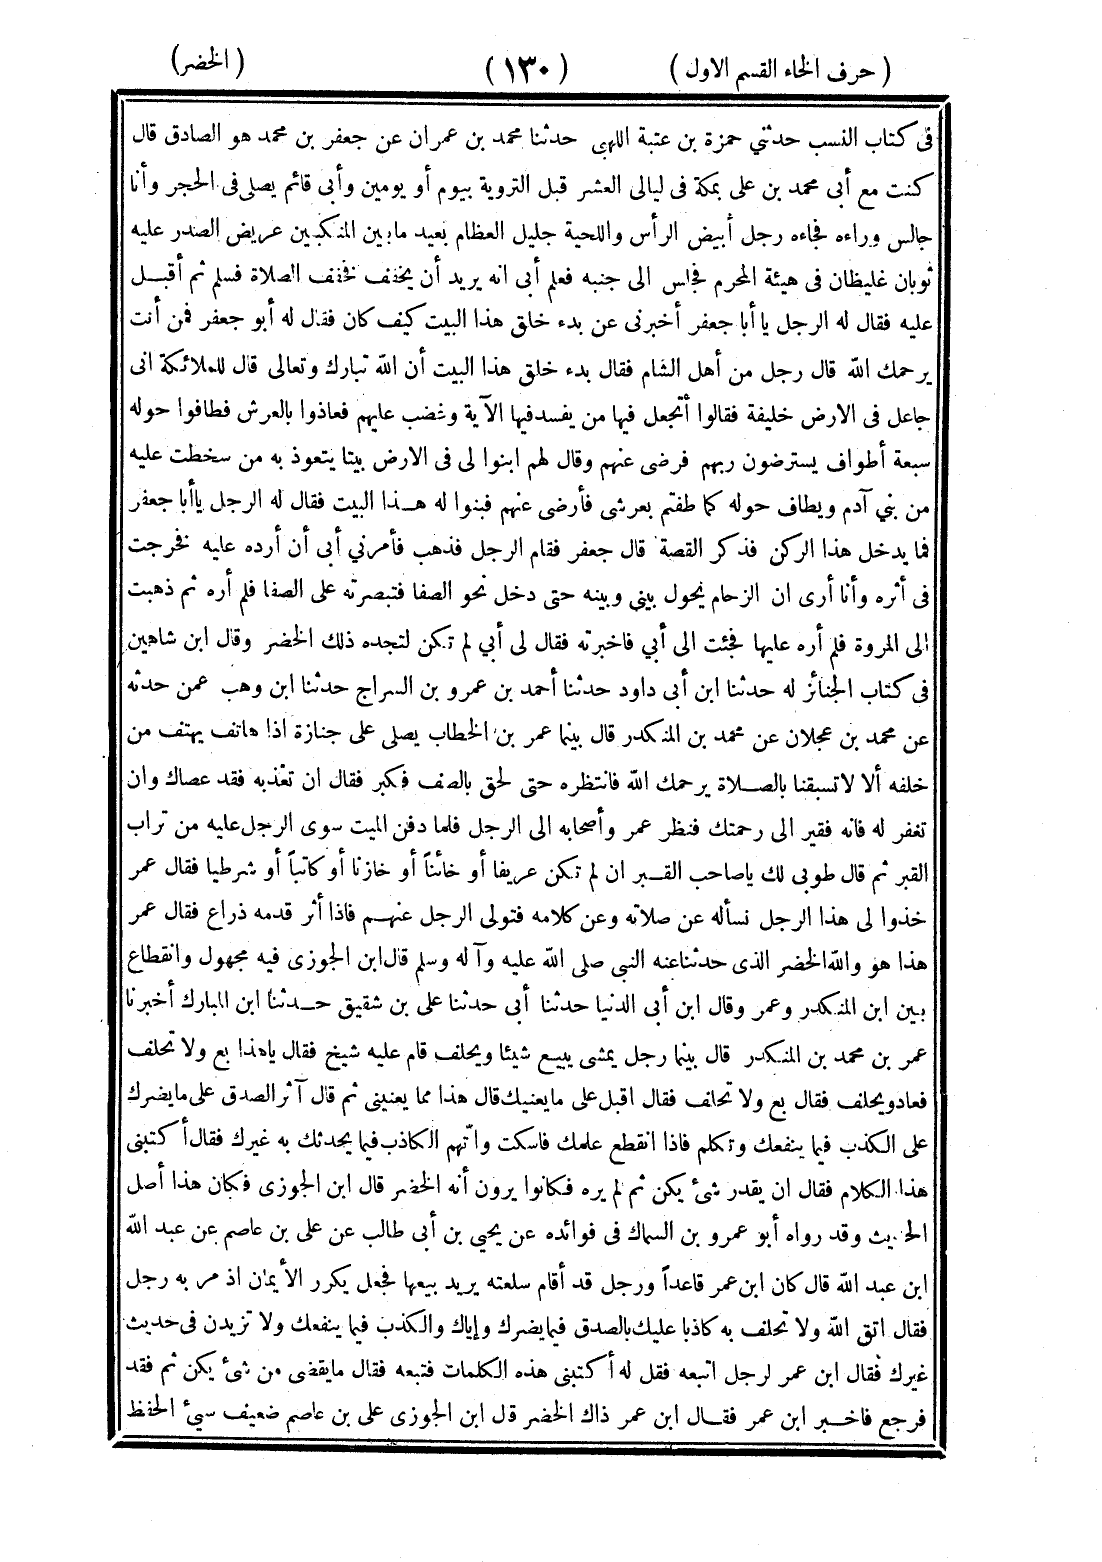 ( حرف الخاء القسم الاول ) ( ١٣٠ ) ( الخضر )
فى كتاب النسب حدثني حمزة بن عتبة اللهبى حدثنا محمد بن عمران عن جعفر بن محمد هو الصادق قال
كنت مع أبى محمد بن على بمكة فى ليالى العشر قبل التروية بيوم أو يومين وأبى قائم يصلى فى الحجر وأنا
جالس وراءه فجاءه رجل أبيض الرأس واللحية جليل العظام بعيد مابين المنكبين عريض الصدر عليه
ثوبان غليظان فى هيئة المحرم فجلس الى جنبه فعلم أبى انه يريد أن يخفف فخفف الصلاة فسلم ثم أقبل
عليه فقال له الرجل يا أبا جعفر أخبرنى عن بدء خلق هذا البيت كيف كان فقال له أبو جعفر فمن أنت
يرحمك الله قال رجل من أهل الشام فقال بدء خلق هذا البيت أن الله تبارك وتعالى قال للملائكة انى
جاعل فى الارض خليفة فقالوا أتجعل فيها من يفسدفيها الآية وغضب عليهم فعاذوا بالعرش فطافوا حوله
سبعة أطواف يسترضون ربهم فرضى عنهم وقال لهم ابنوا لى فى الارض بيتا يتعوذ به من سخطت عليه
من بني آدم ويطاف حوله كما طفتم بعرشى فأرضى عنهم فبنوا له هـذا البيت فقال له الرجل ياأبا جعفر
فما يدخل هذا الركن فذكر القصة قال جعفر فقام الرجل فذهب فأمرني أبى أن أرده عليه فخرجت
فى أثره وأنا أرى ان الزحام يحول بيني وبينه حتى دخل نحو الصفا فتبصرته على الصفا فلم أره ثم ذهبت
الى المروة فلم أره عليها فجئت الى أبي فاخبرته فقال لى أبي لم تكن لتجده ذلك الخضر وقال ابن شاهين
فى كتاب الجنائز له حدثنا ابن أبى داود حدثنا أحمد بن عمرو بن السراج حدثنا ابن وهب عمن حدثه
عن محمد بن عجلان عن محمد بن المنكدر قال بينما عمر بن الخطاب يصلى على جنازة اذا هاتف يهتف من
خلفه ألا لاتسبقنا بالصـلاة يرحمك الله فانتظره حتى لحق بالصف فكبر فقال ان تعذبه فقد عصاك وان
تغفر له فانه فقير الى رحمتك فنظر عمر وأصحابه الى الرجل فلما دفن الميت سوى الرجل عليه من تراب
القبر ثم قال طوبى لك ياصاحب القـبر ان لم تكن عريفا أو خائناً أو خازنا أو كاتباً أو شرطيا فقال عمر
خذوا لى هذا الرجل نسأله عن صلاته وعن كلامه فتولى الرجل عنهـم فاذا أثر قدمه ذراع فقال عمر
هذا هو والله الخضر الذى حدثنا عنه النبي صلى الله عليه وآله وسلم قال ابن الجوزى فيه مجهول وانقطاع
بين ابن المنكدر وعمر وقال ابن أبى الدنيا حدثنا أبى حدثنا على بن شقيق حـدثنا ابن المبارك أخبرنا
عمر بن محمد بن المنكدر قال بينما رجل يمشى يبيع شيئا ويحلف قام عليه شيخ فقال ياهذا بع ولا تحلف
فعاد ويحلف فقال بع ولا تحلف فقال اقبل على مايعنيك قال هذا مما يعنيني ثم قال آثر الصدق على مايضرك
على الكذب فيما ينفعك وتكلم فاذا انقطع علمك فاسكت واتهم الكاذب فيما يحدثك به غيرك فقال أكتبنى
هذا الكلام فقال ان يقدر شئ يكن ثم لم يره فكانوا يرون أنه الخضر قال ابن الجوزى فكان هذا أصل
الحديث وقد رواه أبو عمرو بن السماك فى فوائده عن يحيي بن أبى طالب عن على بن عاصم عن عبد الله
ابن عبد الله قال كان ابن عمر قاعداً ورجل قد أقام سلعته يريد بيعها فجعل يكرر الأيمان اذ مر به رجل
فقال اتق الله ولا تحلف به كاذبا عليك بالصدق فيما يضرك وإياك والكذب فيما ينفعك ولا تزيدن فى حديث
غيرك فقال ابن عمر لرجل اتبعه فقل له أكتبنى هذه الكلمات فتبعه فقال مايقضى من شئ يكن ثم فقد
فرجع فاخـبر ابن عمر فقـال ابن عمر ذاك الخضر قل ابن الجوزى على بن عاصم ضعيف سيئ الحفظ